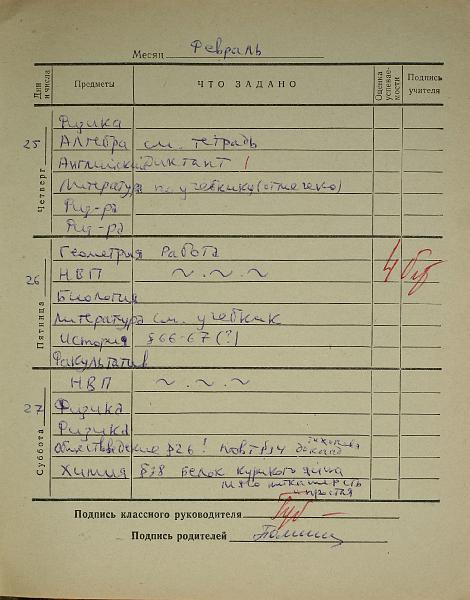 Месяц Февраль
Дни и числа Предметы ЧТО ЗАДАНО Оценка успеваемости Подпись учителя
Четверг 25
Физика
Алгебра см. тетрадь
Английский Диктант !
Литература по учебнику (отмечено)
Физ-ра
Физ-ра
Пятница 26
Геометрия Работа 4
НВП ~.~.~
Биология
Литература см. учебник
История §66-67 (?)
Факультатив
Суббота 27
НВП ~.~.~
Физика
Физика
Обществоведение §26! повт §14
Химия §38 Белок куриного яйца
мясо
и простая
Подпись классного руководителя
Подпись родителей